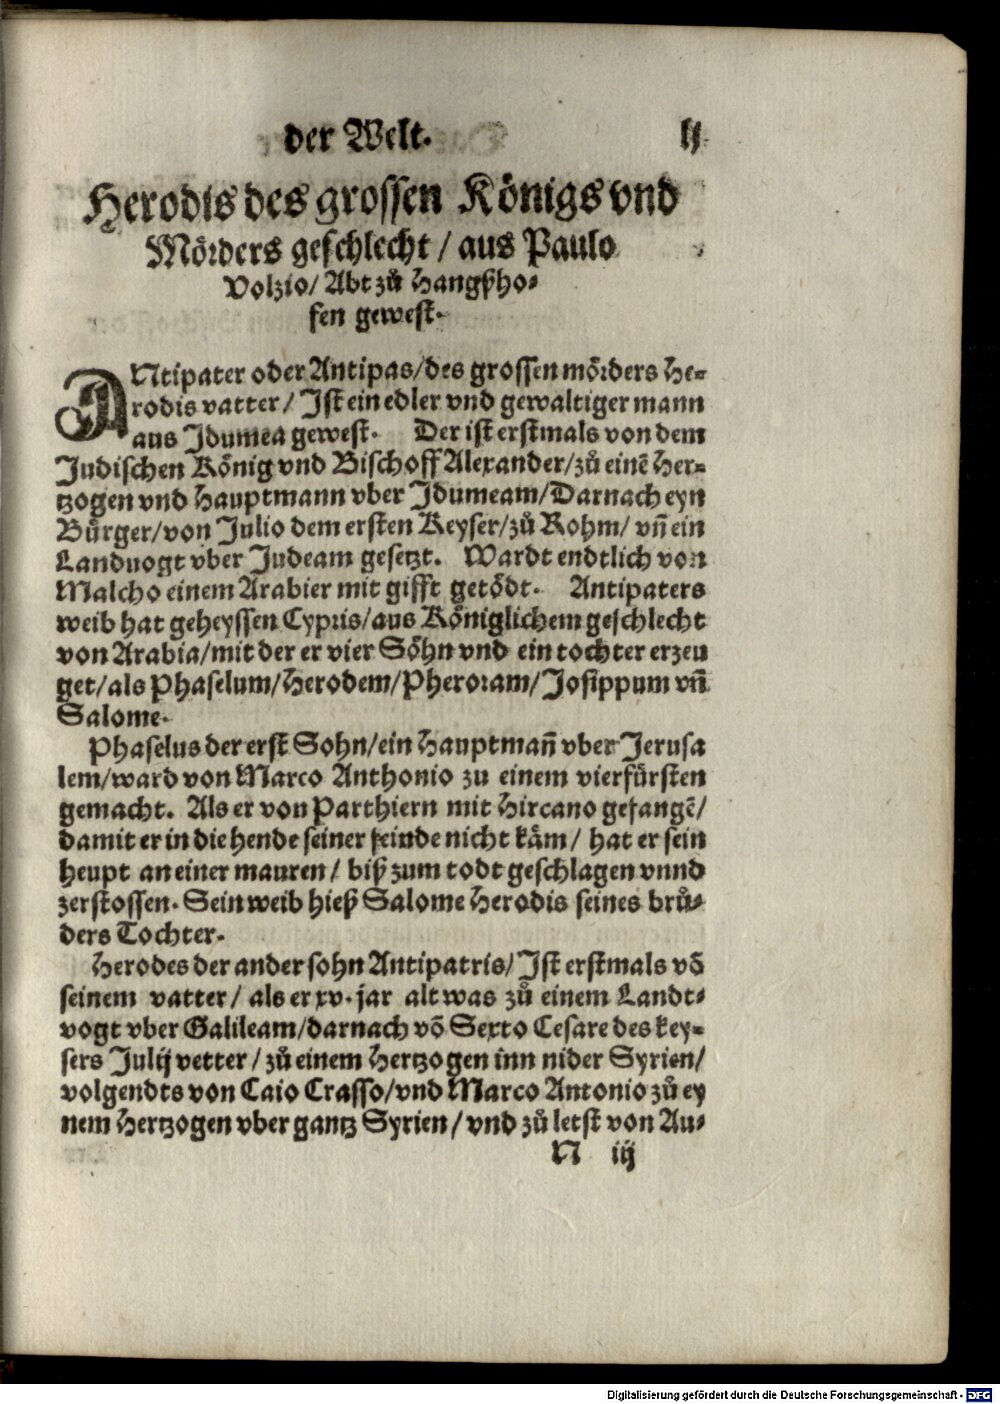 der Welt. lj
Herodis des grossen Königs vnd
Mörders geschlecht / aus Paulo
Volzio / Abt zů Hangßho⸗
fen gewest.
ANtipater oder Antipas/des grossen mörders He⸗
rodis vatter / Ist ein edler vnd gewaltiger mann
aus Idumea gewest. Der ist erstmals von dem
Judischen König vnd Bischoff Alexander/zů einē Her⸗
tzogen vnd Hauptmann vber Idumeam/Darnach eyn
Bürger/von Julio dem ersten Keyser/zů Rohm/ vñ ein
Landuogt vber Judeam gesetzt. Wardt endtlich von
Malcho einem Arabier mit gifft getödt. Antipaters
weib hat geheyssen Cypris/aus Königlichem geschlecht
von Arabia/mit der er vier Söhn vnd ein tochter erzeu
get/als Phaselum/Herodem/Pheroram/Josippum vñ
Salome.
Phaselus der erst Sohn/ein Hauptmañ vber Jerusa
lem/ward von Marco Anthonio zu einem vierfürsten
gemacht. Als er von Parthiern mit Hircano gefangē/
damit er in die hende seiner feinde nicht käm / hat er sein
heupt an einer mauren / biß zum todt geschlagen vnnd
zerstossen. Sein weib hieß Salome Herodis seines brů⸗
ders Tochter.
Herodes der ander sohn Antipatris/ Ist erstmals vō
seinem vatter / als er xv. jar alt was zů einem Landt⸗
vogt vber Galileam/darnach vō Sexto Cesare des key⸗
sers Julij vetter / zů einem Hertzogen inn nider Syrien/
volgendts von Caio Crasso/vnd Marco Antonio zů ey
nem Hertzogen vber gantz Syrien / vnd zů letst von Au⸗
N iij
Digitalisierung gefördert durch die Deutsche Forschungsgemeinschaft - DFG